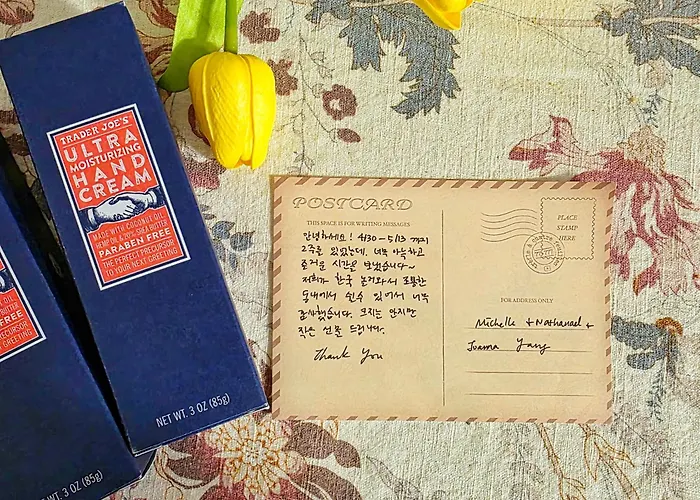 TRADER JOE'S
ULTRA
MOISTURIZING
HAND
CREAM
MADE WITH COCONUT OIL,
HEMP OIL & 20% SHEA BUTTER
PARABEN FREE
THE PERFECT PRECURSOR
TO YOUR NEXT GREETING
NET WT. 3 OZ (85g)
OIL
BUTTER
FREE
PRECURSOR
GREETING
NET WT. 3 OZ (85g)
POSTCARD
THIS SPACE IS FOR WRITING MESSAGES
안녕하세요! 4/30 – 5/13 까지
2주를 있었는데, 너무 아늑하고
즐거운 시간을 보냈습니다~
저희가 한국 놀러와서 조용한
동네에서 쉴수 있어서 너무
감사했습니다. 크지는 안지만
작은 선물 드립니다.
Thank You
PLACE
STAMP
HERE
FOR ADDRESS ONLY
Michelle + Nathanael +
Joanna Yang